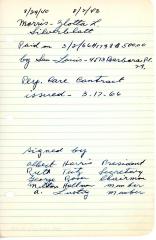 8/29/80 8/7/83
Morris - Zlotta L
Silverblatt
Paid on 3/2/66 # 1798 $500.00
by Sam Louis - 4573 Barbara Pl.
Perp. Care Contract
issued - 3.17.66
signed by
Albert Harris President
Ruth Teitz Secretary
George Rosen Chairman
Milton Hellman member
A. Lustig member